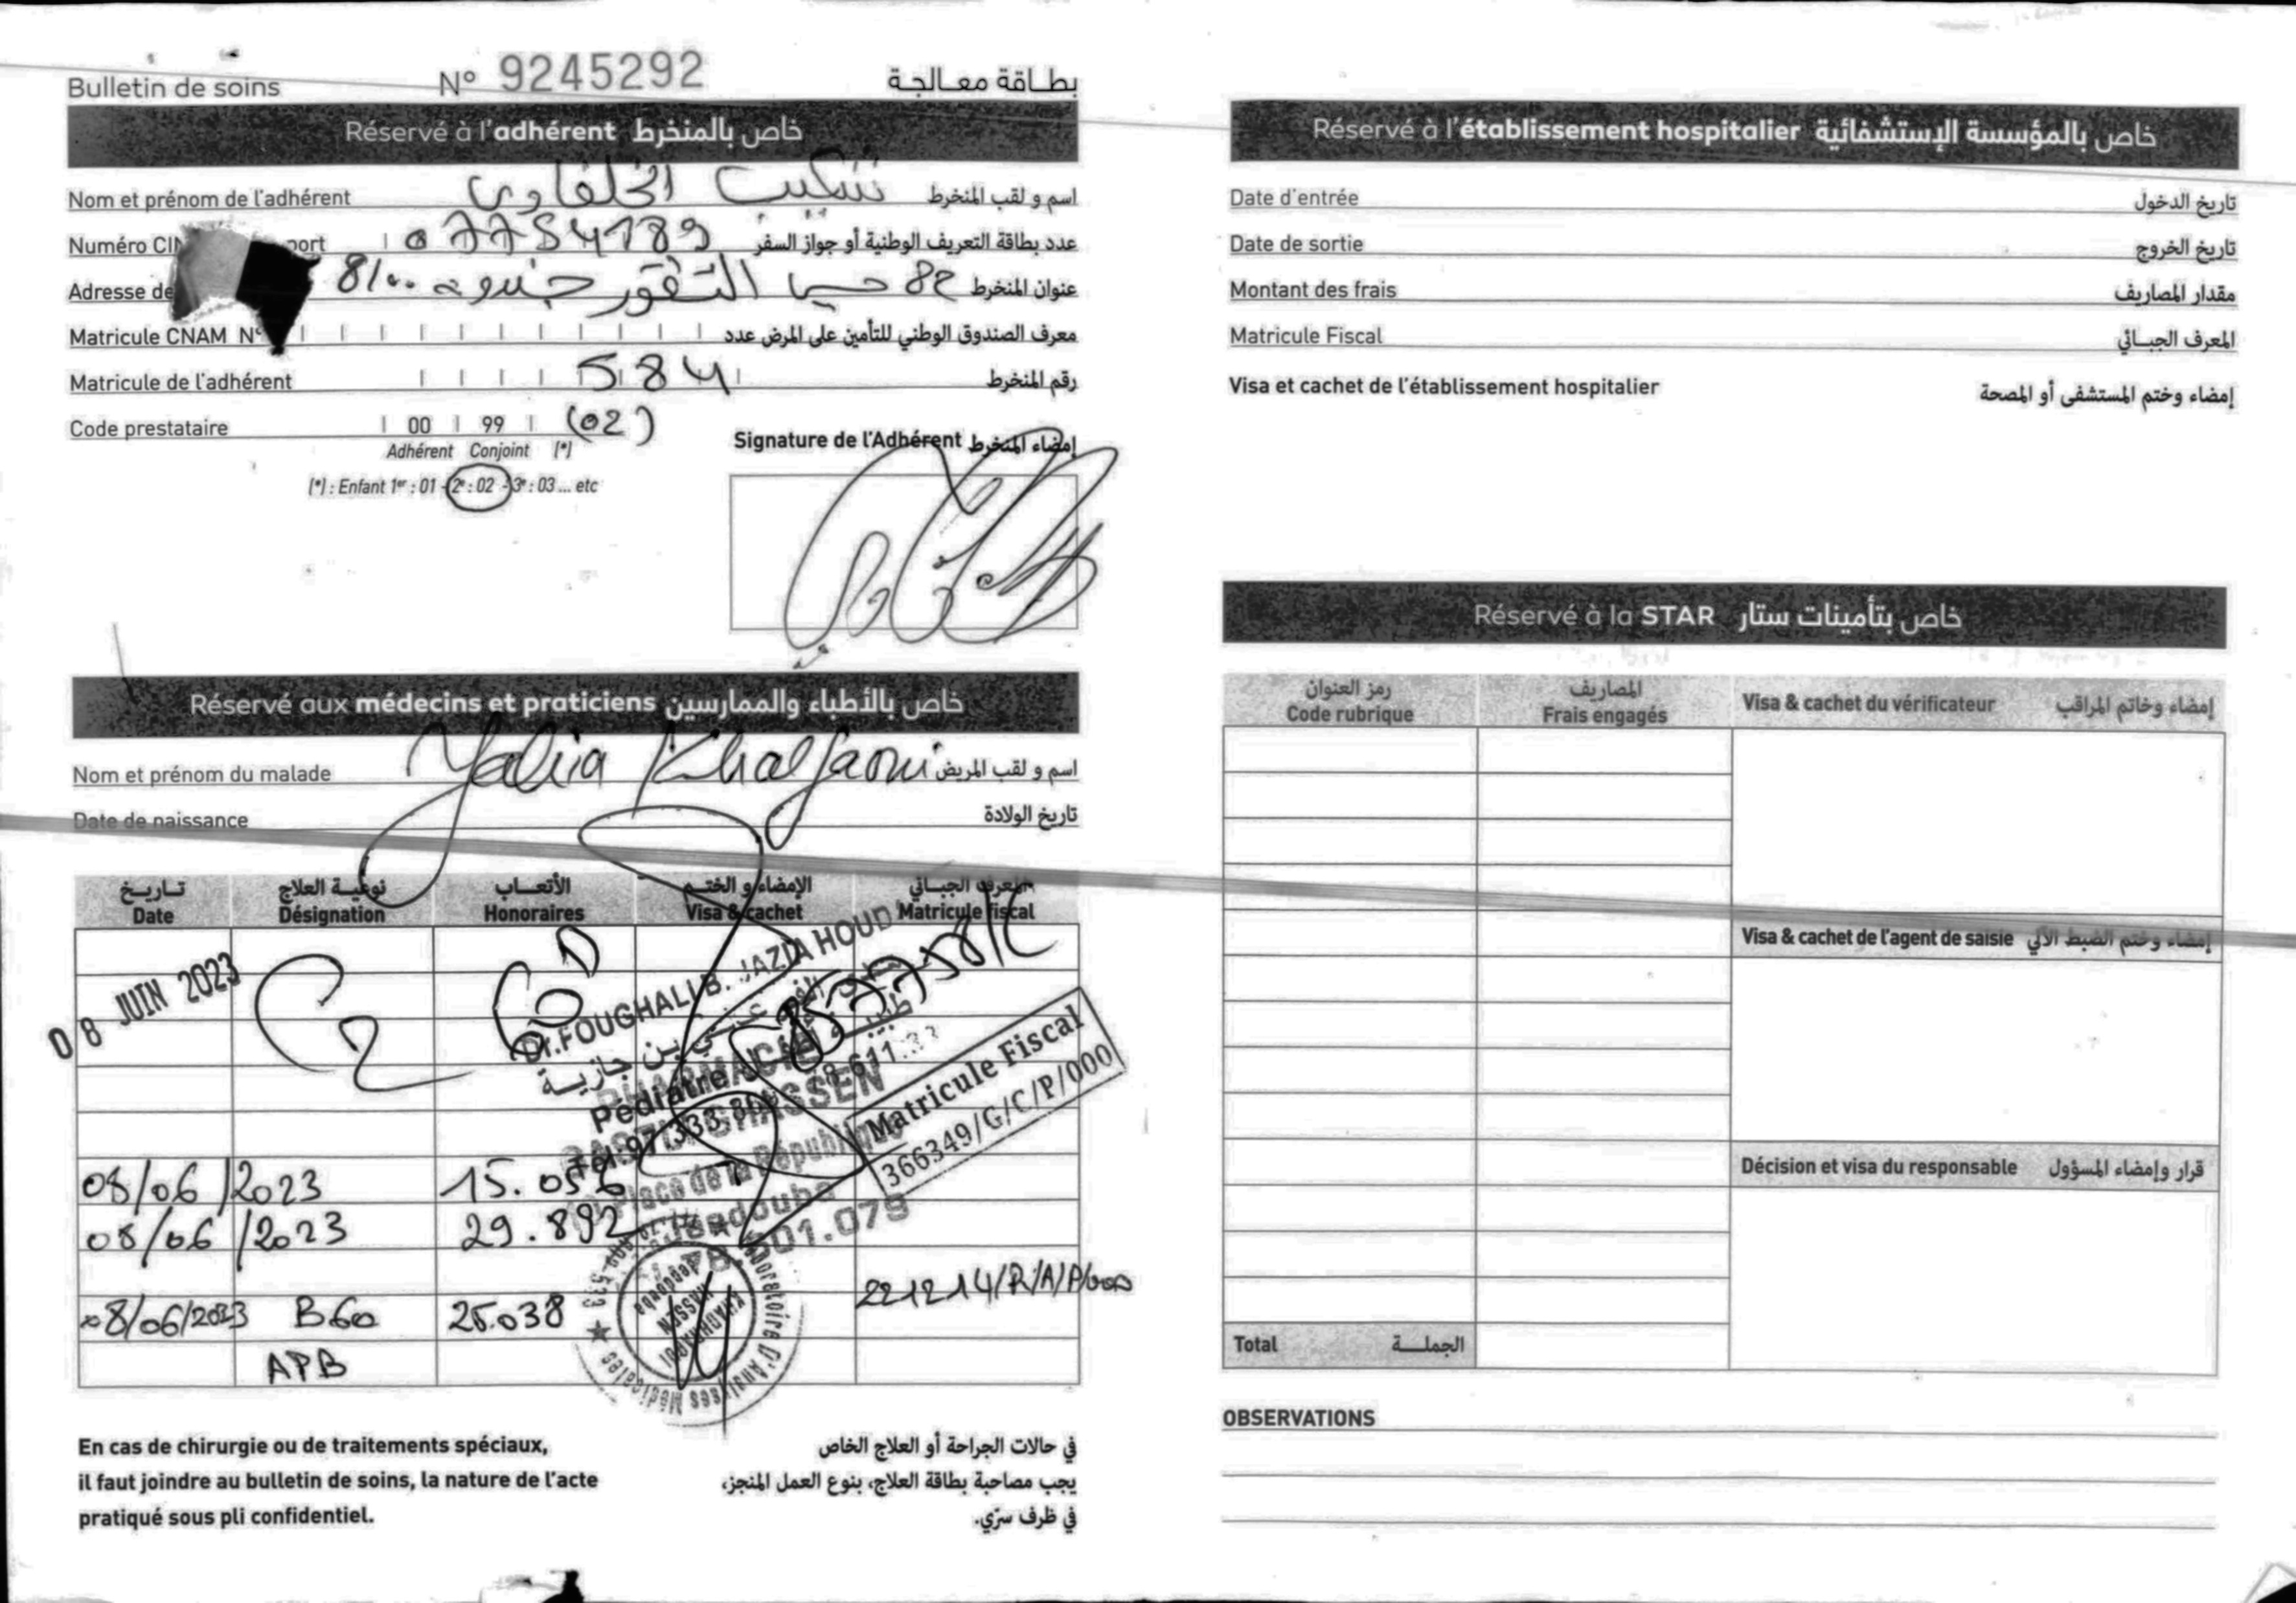 Bulletin de soins N° 9245292 بطاقة معالجة
Réservé à l'adhérent خاص بالمنخرط
Nom et prénom de l'adhérent شكيب الخلفاوي اسم و لقب المنخرط
Numéro CIN port 07754189 عدد بطاقة التعريف الوطنية أو جواز السفر
Adresse de 82 حي جندوبة 8100 عنوان المنخرط
Matricule CNAM N° معرف الصندوق الوطني للتأمين على المرض عدد
Matricule de l'adhérent 584 رقم المنخرط
Code prestataire 00 99 (02)
Adhérent Conjoint (*)
(*) : Enfant 1er : 01 - 2e : 02 - 3e : 03 ... etc
Signature de l'Adhérent إمضاء المنخرط
Réservé aux médecins et praticiens خاص بالأطباء والممارسين
Nom et prénom du malade Yahia Khalfaoui اسم و لقب المريض
Date de naissance تاريخ الولادة
تاريخ نوعية العلاج الأتعاب الإمضاء و الختم المعرف الجبائي
Date Désignation Honoraires Visa & cachet Matricule fiscal
08 JUIN 2023 C2
Dr. FOUGHALI B. JAZIA HOUDA
Pédiatre
PHARMACIE
GHASSEN
Place de la République
Jendouba
Matricule Fiscal
366349/G/C/P/000
08/06/2023 15.056
08/06/2023 29.892
08/06/2023 B60 25.038 221214/R/A/P/000
APB
Laboratoire D'Analyses Médicales
KHADHRAOUI
HASSEN
Jendouba
En cas de chirurgie ou de traitements spéciaux,
il faut joindre au bulletin de soins, la nature de l'acte
pratiqué sous pli confidentiel.
في حالات الجراحة أو العلاج الخاص
يجب مصاحبة بطاقة العلاج، بنوع العمل المنجز،
في ظرف سرّي.
Réservé à l'établissement hospitalier خاص بالمؤسسة الإستشفائية
Date d'entrée تاريخ الدخول
Date de sortie تاريخ الخروج
Montant des frais مقدار المصاريف
Matricule Fiscal المعرف الجبائي
Visa et cachet de l'établissement hospitalier إمضاء وختم المستشفى أو المصحة
Réservé à la STAR خاص بتأمينات ستار
رمز العنوان المصاريف
Code rubrique Frais engagés Visa & cachet du vérificateur إمضاء وخاتم المراقب
Visa & cachet de l'agent de saisie إمضاء وختم الضبط الآلي
Décision et visa du responsable قرار وإمضاء المسؤول
Total الجملة
OBSERVATIONS